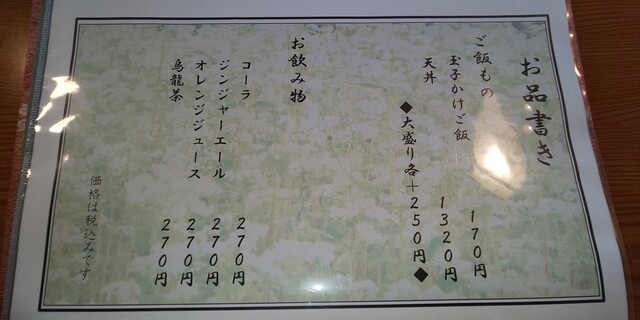 お品書き
ご飯もの
玉子かけご飯 170円
天丼 1320円
◆大盛り各+250円◆
お飲み物
コーラ 270円
ジンジャーエール 270円
オレンジジュース 270円
烏龍茶 270円
価格は税込みです